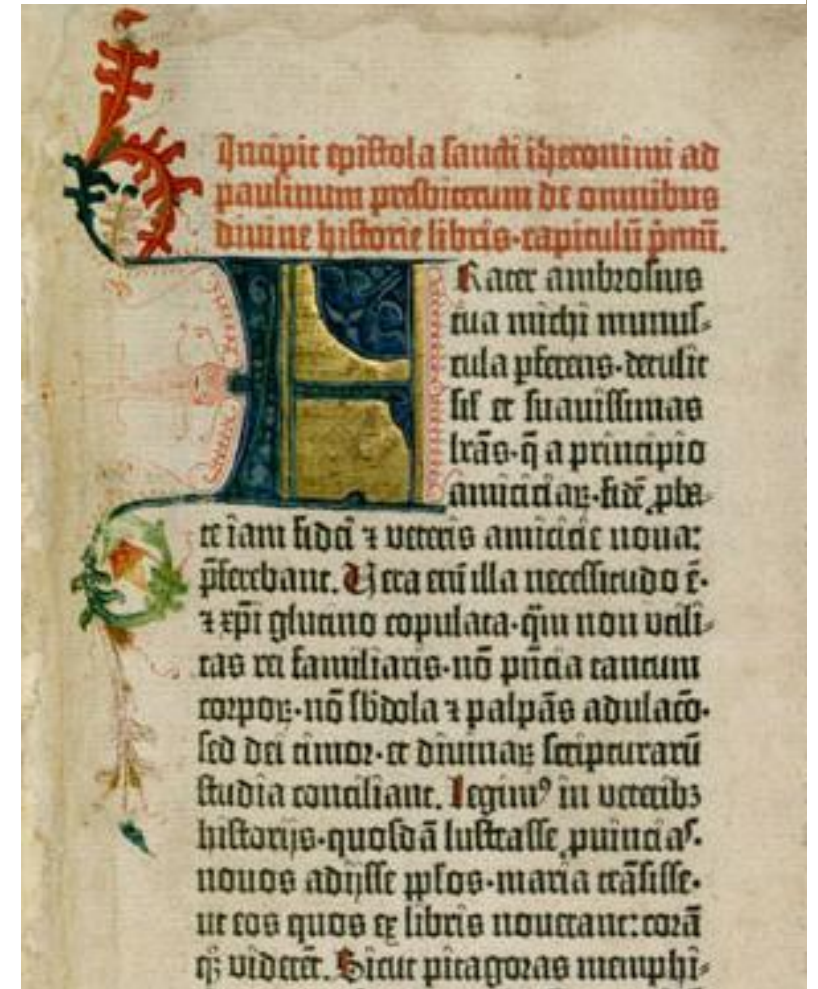 Incipit epistola sancti iheronimi ad
paulinum presbiterum de omnibus
divine historie libris·capitulū p̄mū.
Frater ambrosius
tua michi munus-
cula pferens·detulit
sil et suavissimas
lrās·q̄ a principio
amiciciaꝝ·fidē ꝓba-
te iam fidei ⁊ veteris amicicie nova:
p̄ferebant. Vera eni illa necessitudo ē·
⁊ xp̄i glutino copulata·q̄m non utili-
tas rei familiaris·nō pn̄cia tantum
corpoꝝ·nō sbdola ⁊ palpās adulacō·
sed dei timor·et divinaꝝ scripturarū
studia conciliant. Legimꝰ in veteribꝫ
historijs·quosdā lustrasse ꝓvincias·
novos adijsse pplos·maria trāsisse·
ut eos quos ex libris noverant:corā
qꝫ viderēt. Sicut pitagoras memphi-